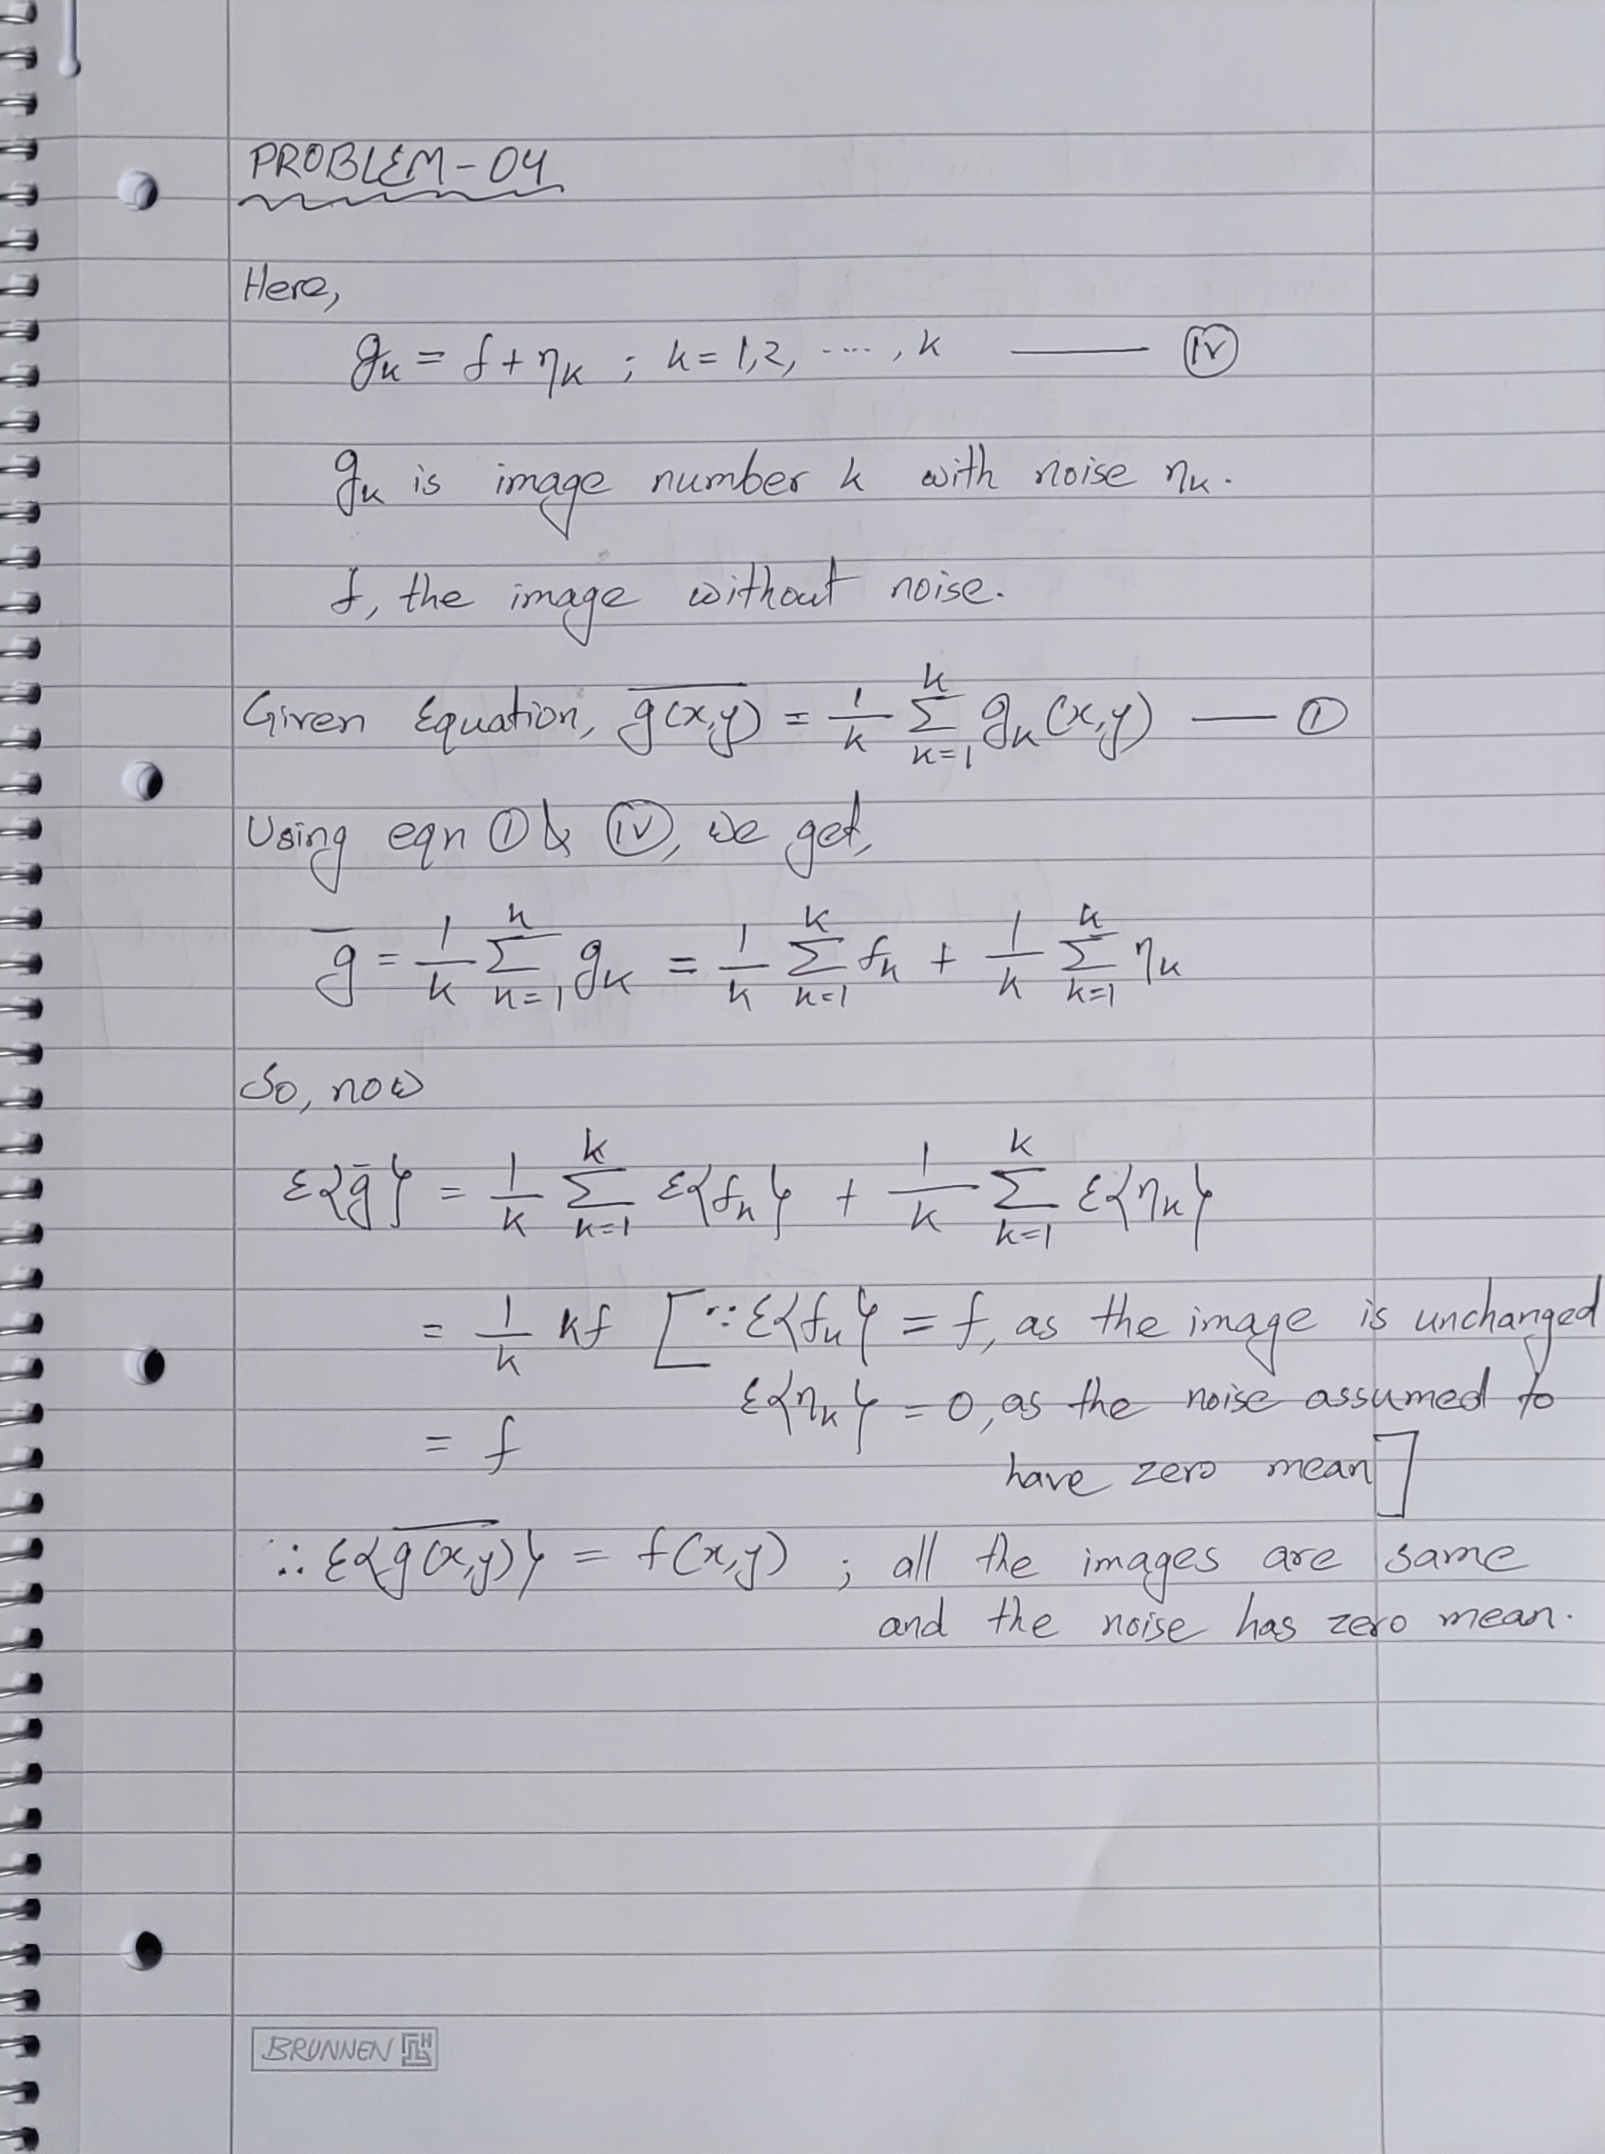 PROBLEM-04
Here,
g_k = f + η_k ; k = 1,2, ...., k —— (iv)
g_k is image number k with noise η_k.
f, the image without noise.
Given Equation, \overline{g(x,y)} = \frac{1}{k} \sum_{k=1}^{k} g_k (x,y) —— (i)
Using eqn (i) & (iv), we get,
\overline{g} = \frac{1}{k} \sum_{k=1}^{k} g_k = \frac{1}{k} \sum_{k=1}^{k} f_k + \frac{1}{k} \sum_{k=1}^{k} η_k
So, now
ε{\overline{g}} = \frac{1}{k} \sum_{k=1}^{k} ε{f_k} + \frac{1}{k} \sum_{k=1}^{k} ε{η_k}
= \frac{1}{k} kf [∵ ε{f_k} = f, as the image is unchanged
ε{η_k} = 0, as the noise assumed to
= f
have zero mean]
∴ ε{\overline{g(x,y)}} = f(x,y) ; all the images are same
and the noise has zero mean.
BRUNNEN